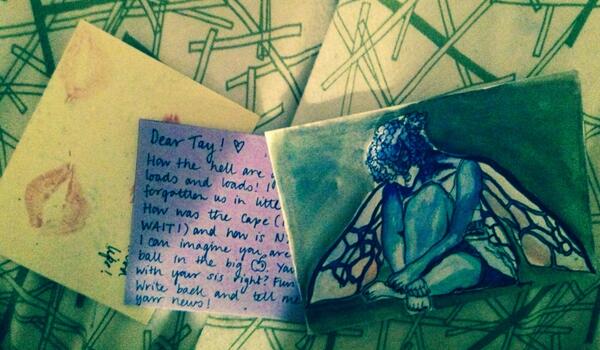 Dear Tay! ♡
How the hell are
loads and loads! I
forgotten us in littl
How was the cape (
WAIT!) and how is N
I can imagine you are
ball in the big
with your sis right? Fun
Write back and tell me
yarr news!